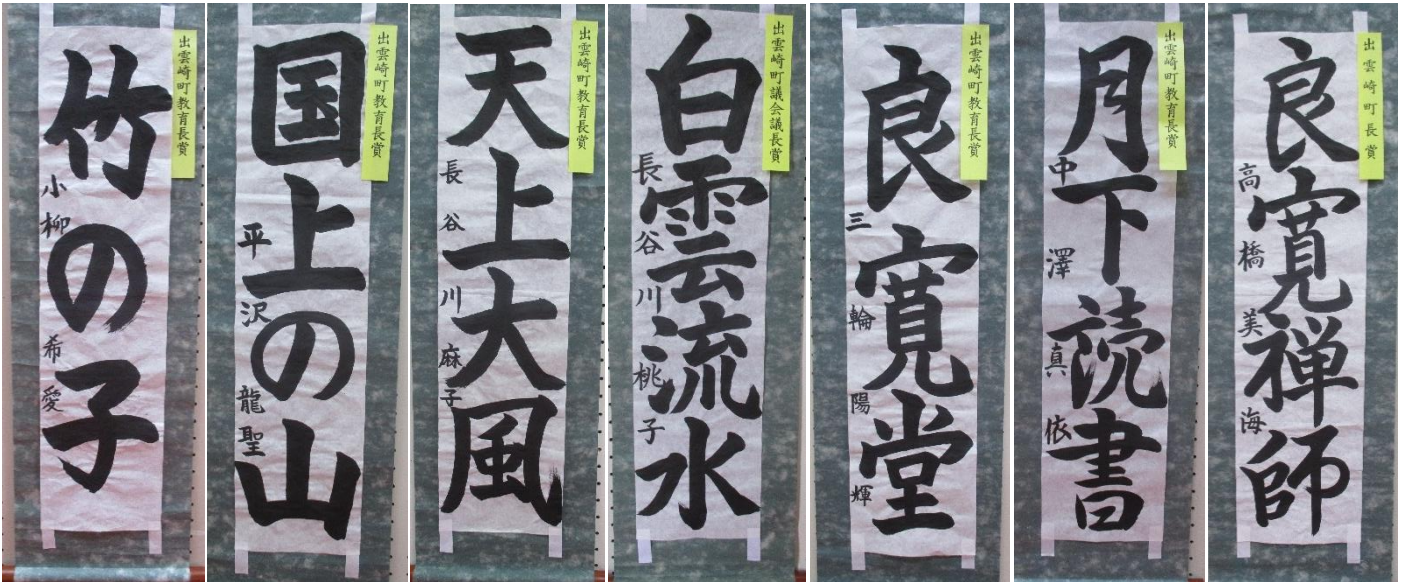 竹の子
小柳希愛
出雲崎町教育長賞
国上の山
平沢龍聖
出雲崎町教育長賞
天上大風
長谷川麻子
出雲崎町教育長賞
白雲流水
長谷川桃子
出雲崎町議会議長賞
良寛堂
三輪陽輝
出雲崎町教育長賞
月下読書
中澤真依
出雲崎町教育長賞
良寛禅師
高橋美海
出雲崎町長賞